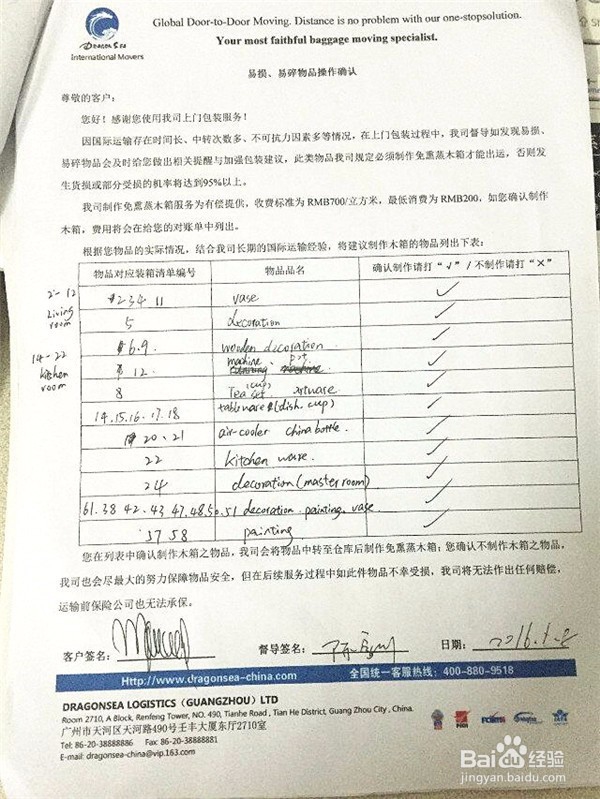 DragonSea
International Movers
Global Door-to-Door Moving. Distance is no problem with our one-stopsolution.
Your most faithful baggage moving specialist.
易损、易碎物品操作确认
尊敬的客户：
您好！感谢您使用我司上门包装服务！
因国际运输存在时间长、中转次数多、不可抗力因素多等情况，在上门包装过程中，我司督导如发现易损、
易碎物品会及时给您做出相关提醒与加强包装建议，此类物品我司规定必须制作免熏蒸木箱才能出运，否则发
生货损或部分受损的机率将达到95%以上。
我司制作免熏蒸木箱服务为有偿提供，收费标准为 RMB700/立方米，最低消费为 RMB200，如您确认制作
木箱，费用将会在给您的对账单中列出。
根据您物品的实际情况，结合我司长期的国际运输经验，将建议制作木箱的物品列出下表：
物品对应装箱清单编号 物品品名 确认制作请打“√”/不制作请打“×”
2-12 living room
234 11 vase ✓
5 decoration ✓
6.9. wooden decoration ✓
14-22 kitchen room
12. machine、pot. ✓
8 Tea set (cup) ✓
14.15.16.17.18 tableware (dish. cup) ✓
20.21 air-cooler china bottle. ✓
22 kitchen ware. ✓
24 decoration (master room) ✓
61.38 42.43 47.48.50.51 decoration. painting. vase. ✓
37 58 painting ✓
您在列表中确认制作木箱之物品，我司会将物品中转至仓库后制作免熏蒸木箱；您确认不制作木箱之物品，
我司也会尽最大的努力保障物品安全，但在后续服务过程中如此件物品不幸受损，我司将无法作出任何赔偿，
运输前保险公司也无法承保。
客户签名： 督导签名： 日期：2016.1.8
Http://www.dragonsea-china.com 全国统一客服热线：400-880-9518
DRAGONSEA LOGISTICS (GUANGZHOU) LTD
Room 2710, A Block, Renfeng Tower, NO. 490, Tianhe Road , Tian He District, Guang Zhou City , China.
广州市天河区天河路490号壬丰大厦东厅2710室
Tel: 86-20-38888886 Fax: 86-20-38888881
E-mail: dragonsea-china@vip.163.com
Baidu经验
jingyan.baidu.com